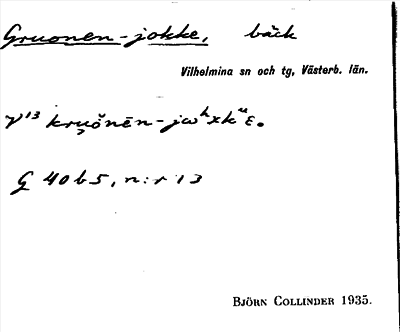 Gruonen-jokke, bäck
Vilhelmina sn och tg, Västerb. län.
G 40 b 5, n:r 13
BJÖRN COLLINDER 1935.